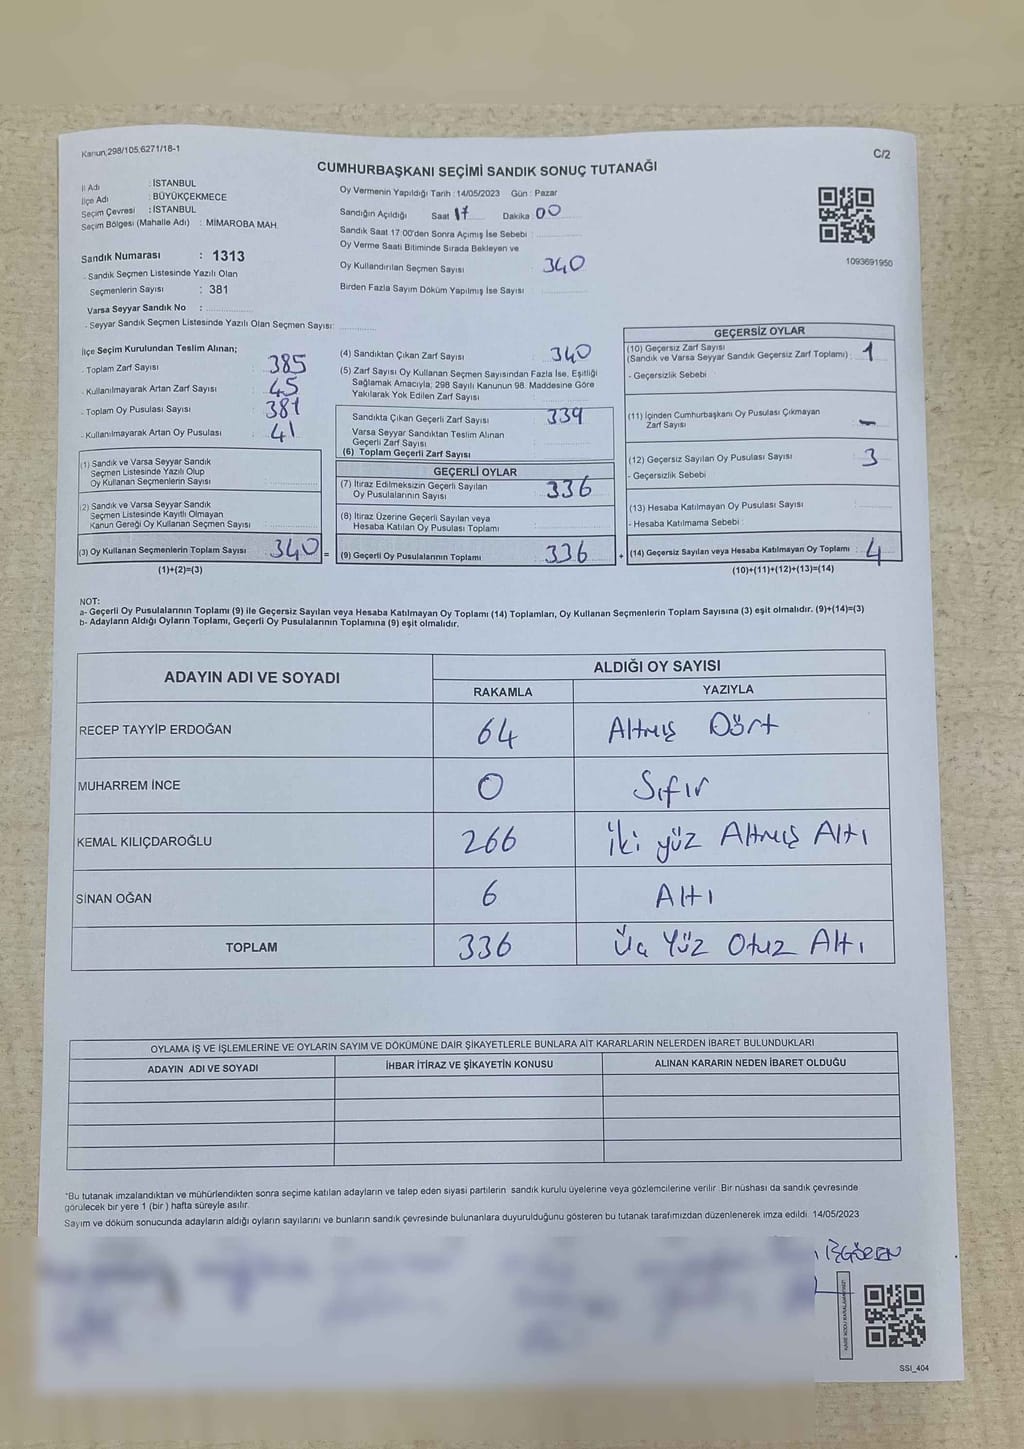 Kanun,298/105,6271/18-1
C/2
CUMHURBAŞKANI SEÇİMİ SANDIK SONUÇ TUTANAĞI
İl Adı : İSTANBUL
İlçe Adı : BÜYÜKÇEKMECE
Seçim Çevresi : İSTANBUL
Seçim Bölgesi (Mahalle Adı) : MİMAROBA MAH.
Sandık Numarası : 1313
- Sandık Seçmen Listesinde Yazılı Olan
Seçmenlerin Sayısı : 381
Varsa Seyyar Sandık No :
- Seyyar Sandık Seçmen Listesinde Yazılı Olan Seçmen Sayısı:
Oy Vermenin Yapıldığı Tarih : 14/05/2023 Gün : Pazar
Sandığın Açıldığı Saat 17 Dakika 00
Sandık Saat 17.00'den Sonra Açımış İse Sebebi :
Oy Verme Saati Bitiminde Sırada Bekleyen ve
Oy Kullandırılan Seçmen Sayısı 340
Birden Fazla Sayım Döküm Yapılmış İse Sayısı
1093691950
İlçe Seçim Kurulundan Teslim Alınan;
- Toplam Zarf Sayısı : 385
- Kullanılmayarak Artan Zarf Sayısı : 45
- Toplam Oy Pusulası Sayısı : 381
- Kullanılmayarak Artan Oy Pusulası : 41
(1) Sandık ve Varsa Seyyar Sandık
Seçmen Listesinde Yazılı Olup
Oy Kullanan Seçmenlerin Sayısı :
(2) Sandık ve Varsa Seyyar Sandık
Seçmen Listesinde Kayıtlı Olmayan
Kanun Gereği Oy Kullanan Seçmen Sayısı :
(3) Oy Kullanan Seçmenlerin Toplam Sayısı : 340 =
(1)+(2)=(3)
(4) Sandıktan Çıkan Zarf Sayısı : 340
(5) Zarf Sayısı Oy Kullanan Seçmen Sayısından Fazla İse, Eşitliği
Sağlamak Amacıyla, 298 Sayılı Kanunun 98. Maddesine Göre
Yakılarak Yok Edilen Zarf Sayısı
Sandıkta Çıkan Geçerli Zarf Sayısı : 339
Varsa Seyyar Sandıktan Teslim Alınan
Geçerli Zarf Sayısı
(6) Toplam Geçerli Zarf Sayısı
GEÇERLİ OYLAR
(7) İtiraz Edilmeksizin Geçerli Sayılan
Oy Pusulalarının Sayısı : 336
(8) İtiraz Üzerine Geçerli Sayılan veya
Hesaba Katılan Oy Pusulası Toplamı
(9) Geçerli Oy Pusulalarının Toplamı : 336 +
GEÇERSİZ OYLAR
(10) Geçersiz Zarf Sayısı
(Sandık ve Varsa Seyyar Sandık Geçersiz Zarf Toplamı) : 1
- Geçersizlik Sebebi :
(11) İçinden Cumhurbaşkanı Oy Pusulası Çıkmayan
Zarf Sayısı : -
(12) Geçersiz Sayılan Oy Pusulası Sayısı : 3
- Geçersizlik Sebebi
(13) Hesaba Katılmayan Oy Pusulası Sayısı :
- Hesaba Katılmama Sebebi :
(14) Geçersiz Sayılan veya Hesaba Katılmayan Oy Toplamı : 4
(10)+(11)+(12)+(13)=(14)
NOT:
a- Geçerli Oy Pusulalarının Toplamı (9) ile Geçersiz Sayılan veya Hesaba Katılmayan Oy Toplamı (14) Toplamları, Oy Kullanan Seçmenlerin Toplam Sayısına (3) eşit olmalıdır. (9)+(14)=(3)
b- Adayların Aldığı Oyların Toplamı, Geçerli Oy Pusulalarının Toplamına (9) eşit olmalıdır.
ADAYIN ADI VE SOYADI
ALDIĞI OY SAYISI
RAKAMLA YAZIYLA
RECEP TAYYİP ERDOĞAN 64 Altmış Dört
MUHARREM İNCE 0 Sıfır
KEMAL KILIÇDAROĞLU 266 iki yüz Altmış Altı
SİNAN OĞAN 6 Altı
TOPLAM 336 Üç Yüz Otuz Altı
OYLAMA İŞ VE İŞLEMLERİNE VE OYLARIN SAYIM VE DÖKÜMÜNE DAİR ŞİKAYETLERLE BUNLARA AİT KARARLARIN NELERDEN İBARET BULUNDUKLARI
ADAYIN ADI VE SOYADI İHBAR İTİRAZ VE ŞİKAYETİN KONUSU ALINAN KARARIN NEDEN İBARET OLDUĞU
*Bu tutanak imzalandıktan ve mühürlendikten sonra seçime katılan adayların ve talep eden siyasi partilerin sandık kurulu üyelerine veya gözlemcilerine verilir. Bir nüshası da sandık çevresinde
görülecek bir yere 1 (bir) hafta süreyle asılır.
Sayım ve döküm sonucunda adayların aldığı oyların sayılarını ve bunların sandık çevresinde bulunanlara duyurulduğunu gösteren bu tutanak tarafımızdan düzenlenerek imza edildi. 14/05/2023
İŞGÖREN
SSI_404